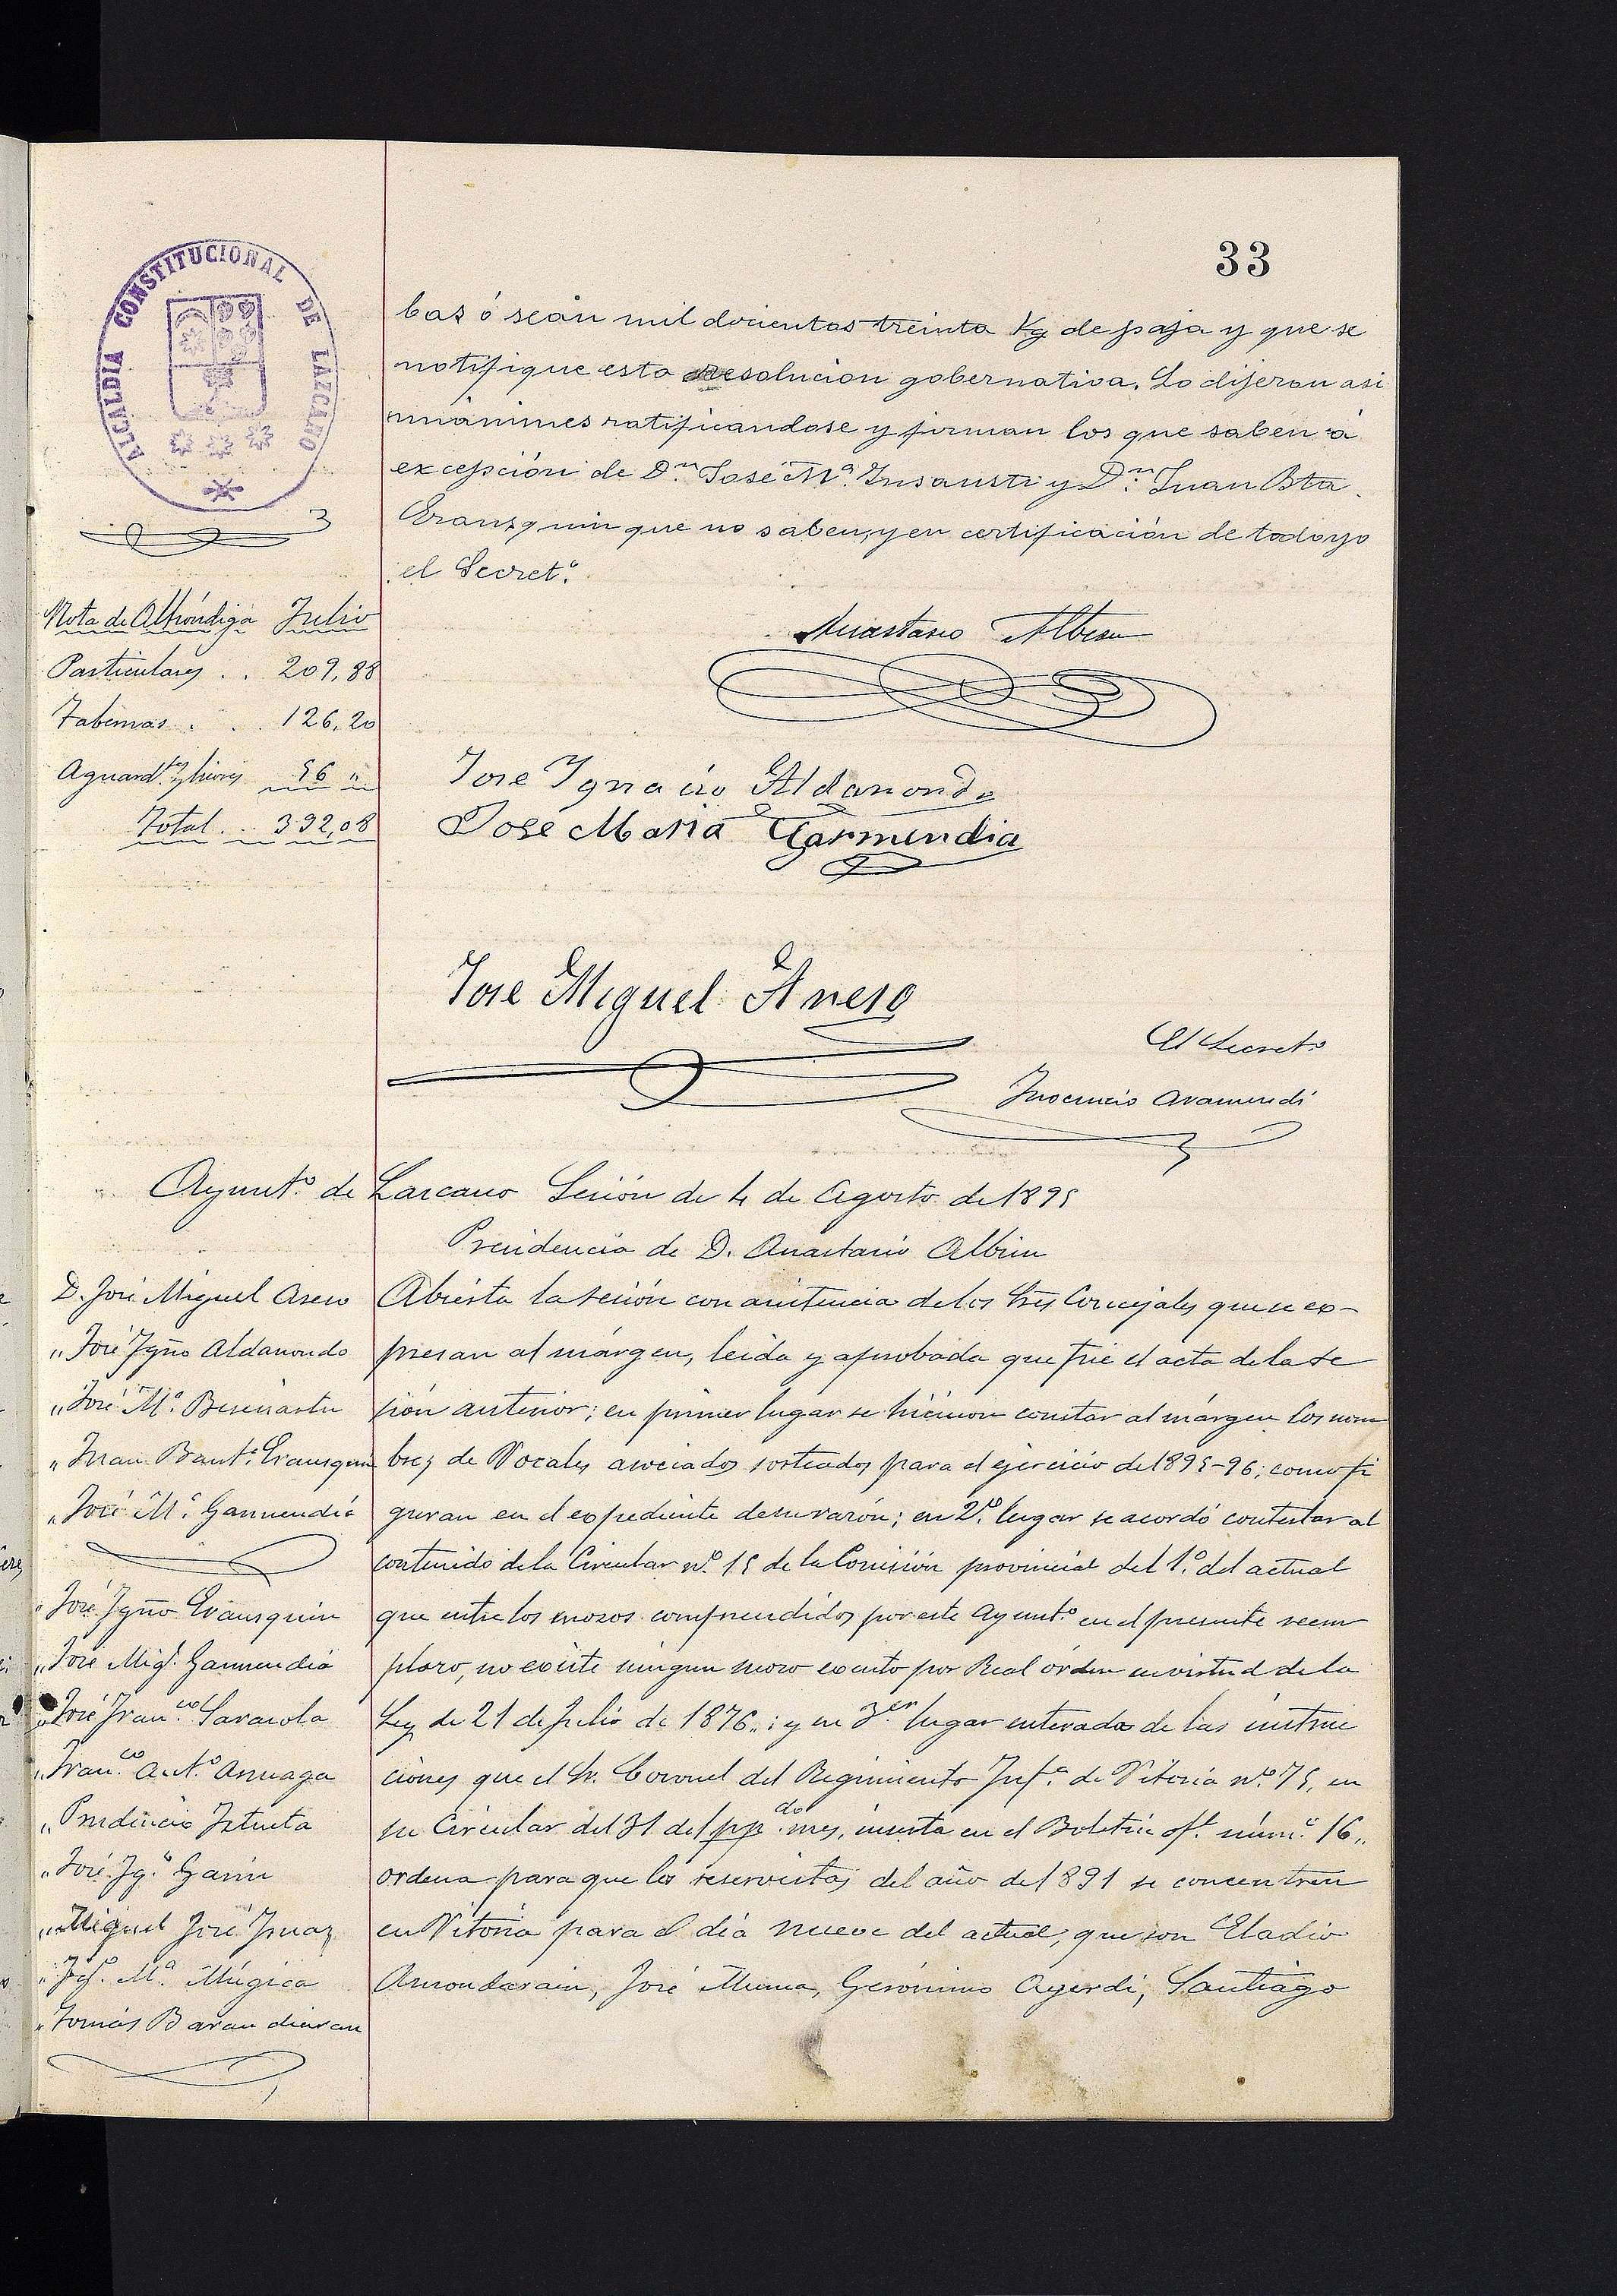 33
ALCALDIA CONSTITUCIONAL DE LAZCANO
bas ó sean mil docientos treinta Kg de paja y que se
notifique esta resolucion gobernativa. Lo dijeron asi
unánimes ratificandose y firman los que saben á
excepción de D.n José M.a Insausti y D.n Juan Bta.
Eransquin que no saben, y en certificación de todo yo
el Secret.o
Nota de Alhóndiga Julio
Particulares . . 209,88
Tabernas . . . 126,20
Aguard.tes y licores 56 "
Total . . 392,08
Anastasio Albisu
Jose Ygnacio Aldanondo
José Maria Garmendia
Jose Miguel Aseso
El Secret.o
Inocencio Aramendi
Ayunt.o de Lazcano Sesión de 4 de Agosto de 1895
Presidencia de D. Anastasio Albisu
D. José Miguel Aseso
" José Ygño Aldanondo
" José M.a
" Juan Baut.a Eransquin
" José M.a Garmendia
" José Ygño Eransquin
" José Mig.l Garmendia
" José Fran.co Sarasola
" Fran.co Ant.o
" Prudencio Iztueta
" José Ig.o Garin
" Miguel José Imaz
" M.a Múgica
" Tomás Barandiaran
Abierta la sesión con asistencia de los Sres Concejales que se ex-
presan al márgen, leida y aprobada que fué el acta de la se
sión anterior; en primer lugar se hicieron constar al márgen los nom
bres de Vocales asociados sorteados para el ejercicio de 1895-96; como fi
guran en el expediente de su razón; en 2.o lugar se acordó contestar al
contenido de la Circular n.o 15 de la Comisión provincial del 1.o del actual
que entre los mozos comprendidos por este Ayunt.o en el presente reem
plazo, no existe ningun mozo exento por Real órden en virtud de la
Ley de 21 de Julio de 1876.; y en 3.er lugar enterados de las instruc
ciones que el Sr. Coronel del Regimiento Inf.a de Vitoria n.o 75, en
su Circular del 31 del pp.do mes, inserta en el Boletin of.l núm.o 16.
ordena para que los reservistas del año de 1891 se concentren
en Vitoria para el dia nueve del actual, que son Eladio
Amondarain, José Gerónimo Ayerdi, Santiago